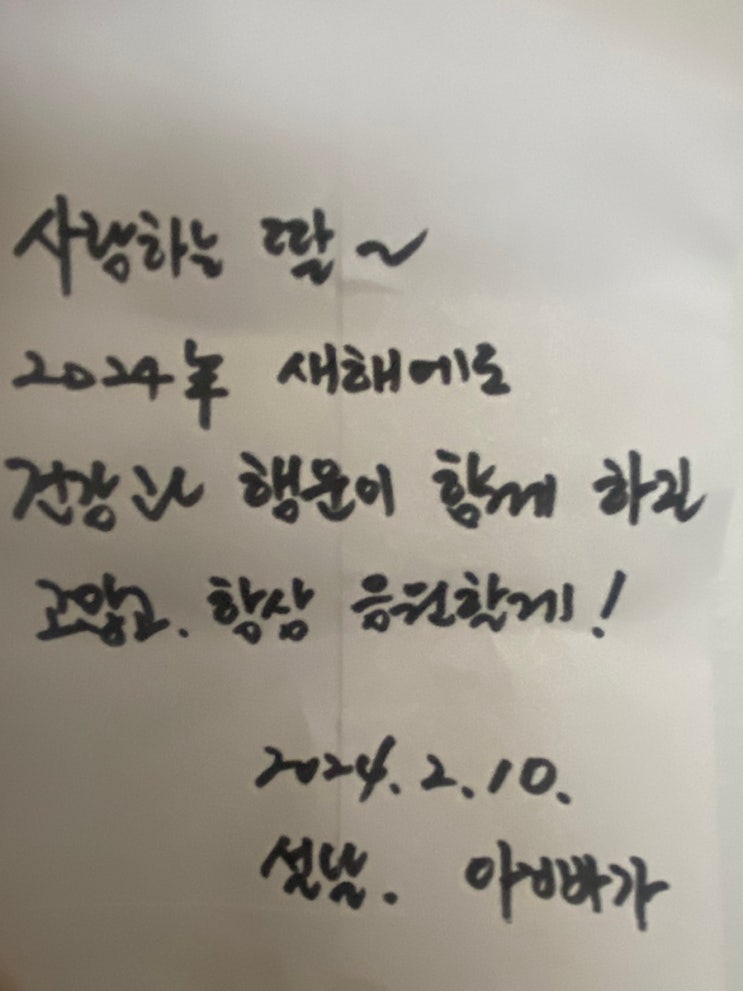 사랑하는 딸~
2024年 새해에도
건강과 행운이 함께 하길
고맙고. 항상 응원할게!
2024. 2. 10.
설날. 아빠가